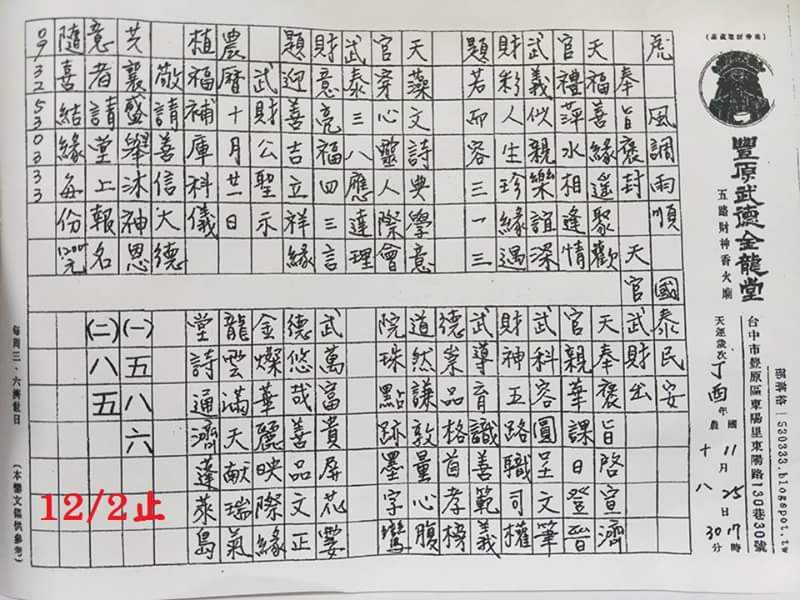 豐原武德金龍堂
五路財神香火廟
台中市豐原區東陽里東陽路130巷30號
部落格 | 530333.blogspot.tw
天運歲次丁酉年國11月25日17時
農十八30分
虎 風調雨順 國泰民安
奉旨褒封 天官武財出
天福善緣遙聚歡
官禮萍水相逢情
武義似親樂誼深
財彩人生珍緣遇
題若而容三一三
天奉褒旨啓宣濟
官親華課日登晉
武科容圓呈文筆
財神五路職司權
武導育識善範義
德案品格首孝榜
道然謙敦量心腹
院珠點跡墨字鸞
天藻文詩典學意
官穿心靈人際會
武泰三八應達理
財意亮福四三言
題迎善吉立祥緣
武財公聖示
農曆十月廿一日
植福補庫科儀
敬請善信大德
共襄盛舉沐神恩
意者請堂上報名
隨喜結緣每份1200元
0932530333
武萬富貴屏花雯
德悠哉善品文正
金燦華麗映際緣
龍雲滿天獻瑞氣
堂詩通濟蓬萊島
(一)五八六
(二)八五
12/2止
每周三、六濟世日
(本鸞文稿供參考)